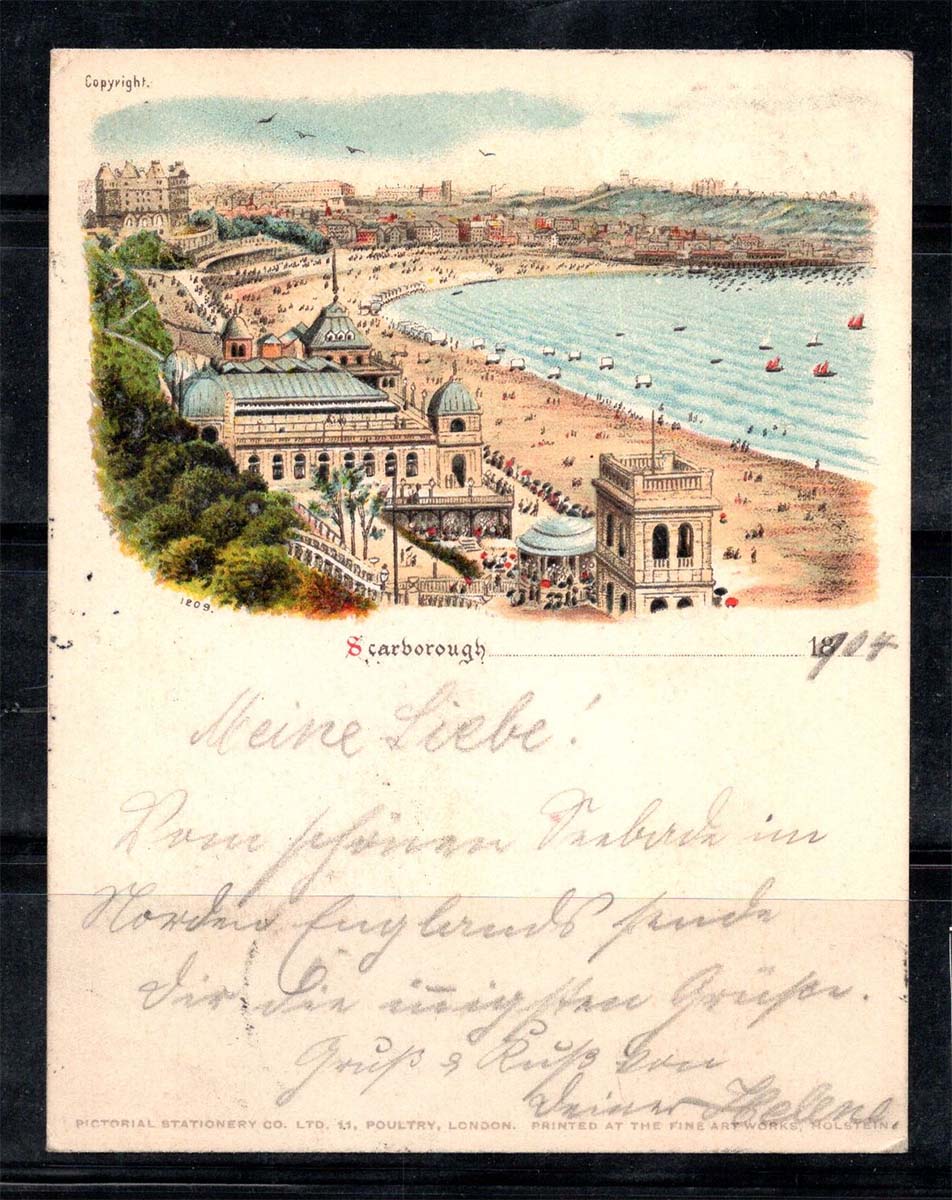 Copyright.
1209.
Scarborough 18904
Meine Liebe!
Vom schönen Seebade im
Norden Englands sende
Dir die innigsten Grüße.
Gruß & Kuß von
Deiner Helene
PICTORIAL STATIONERY CO. LTD. 11, POULTRY, LONDON. PRINTED AT THE FINE ART WORKS, HOLSTEIN.